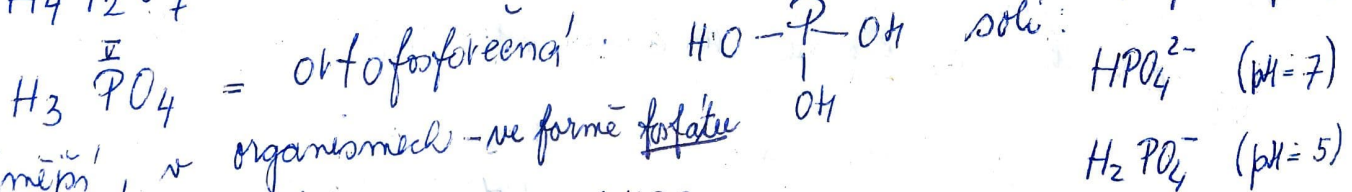 H4P2O7
H3 PO4 = ortofosforečná: HO-P-OH soli: HPO4²⁻ (pH = 7)
V
OH
měpí, v organismech - ve formě fosfátu H2PO4⁻ (pH = 5)